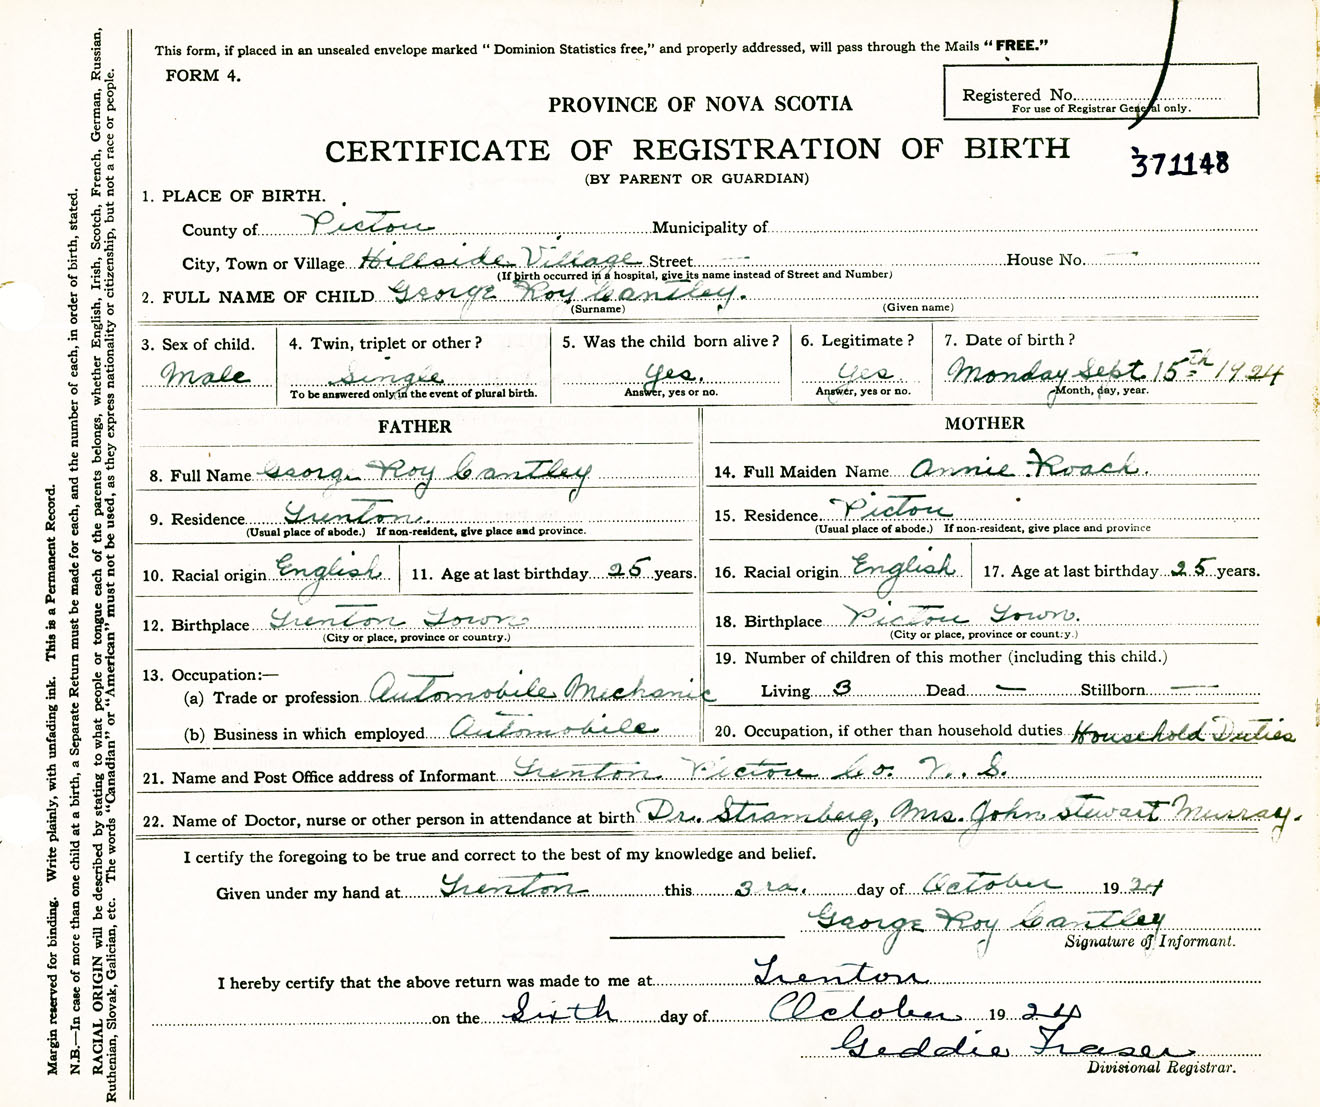 This form, if placed in an unsealed envelope marked "Dominion Statistics free," and properly addressed, will pass through the Mails "FREE."
FORM 4.
Registered No.
For use of Registrar General only.
PROVINCE OF NOVA SCOTIA
CERTIFICATE OF REGISTRATION OF BIRTH
371148
(BY PARENT OR GUARDIAN)
1. PLACE OF BIRTH.
County of Pictou Municipality of
City, Town or Village Hillside Village Street — House No. —
(If birth occurred in a hospital, give its name instead of Street and Number)
2. FULL NAME OF CHILD George Roy Cantley.
(Surname) (Given name)
3. Sex of child. 4. Twin, triplet or other? 5. Was the child born alive? 6. Legitimate? 7. Date of birth?
Male Single Yes. Yes Monday Sept 15th 1924
To be answered only in the event of plural birth. Answer, yes or no. Answer, yes or no. Month, day, year.
FATHER
8. Full Name George Roy Cantley
9. Residence Trenton.
(Usual place of abode.) If non-resident, give place and province.
10. Racial origin English 11. Age at last birthday 25 years.
12. Birthplace Trenton Town
(City or place, province or country.)
13. Occupation:—
(a) Trade or profession Automobile Mechanic
(b) Business in which employed Automobile
MOTHER
14. Full Maiden Name Annie Roach.
15. Residence Pictou
(Usual place of abode.) If non-resident, give place and province
16. Racial origin English 17. Age at last birthday 25 years.
18. Birthplace Pictou Town.
(City or place, province or country.)
19. Number of children of this mother (including this child.)
Living 3 Dead — Stillborn —
20. Occupation, if other than household duties Household Duties
21. Name and Post Office address of Informant Trenton Pictou Co. N. S.
22. Name of Doctor, nurse or other person in attendance at birth Dr. Stramberg, Mrs. John Stewart Murray.
I certify the foregoing to be true and correct to the best of my knowledge and belief.
Given under my hand at Trenton this 3rd. day of October 1924
George Roy Cantley
Signature of Informant.
I hereby certify that the above return was made to me at Trenton
on the Sixth day of October 1924
Geddie Fraser
Divisional Registrar.
Margin reserved for binding. Write plainly, with unfading ink. This is a Permanent Record.
N.B.—In case of more than one child at a birth, a Separate Return must be made for each, and the number of each, in order of birth, stated.
RACIAL ORIGIN will be described by stating to what people or tongue each of the parents belongs, whether English, Irish, Scotch, French, German, Russian,
Ruthenian, Slovak, Galician, etc. The words "Canadian" or "American" must not be used, as they express nationality or citizenship, but not a race or people.